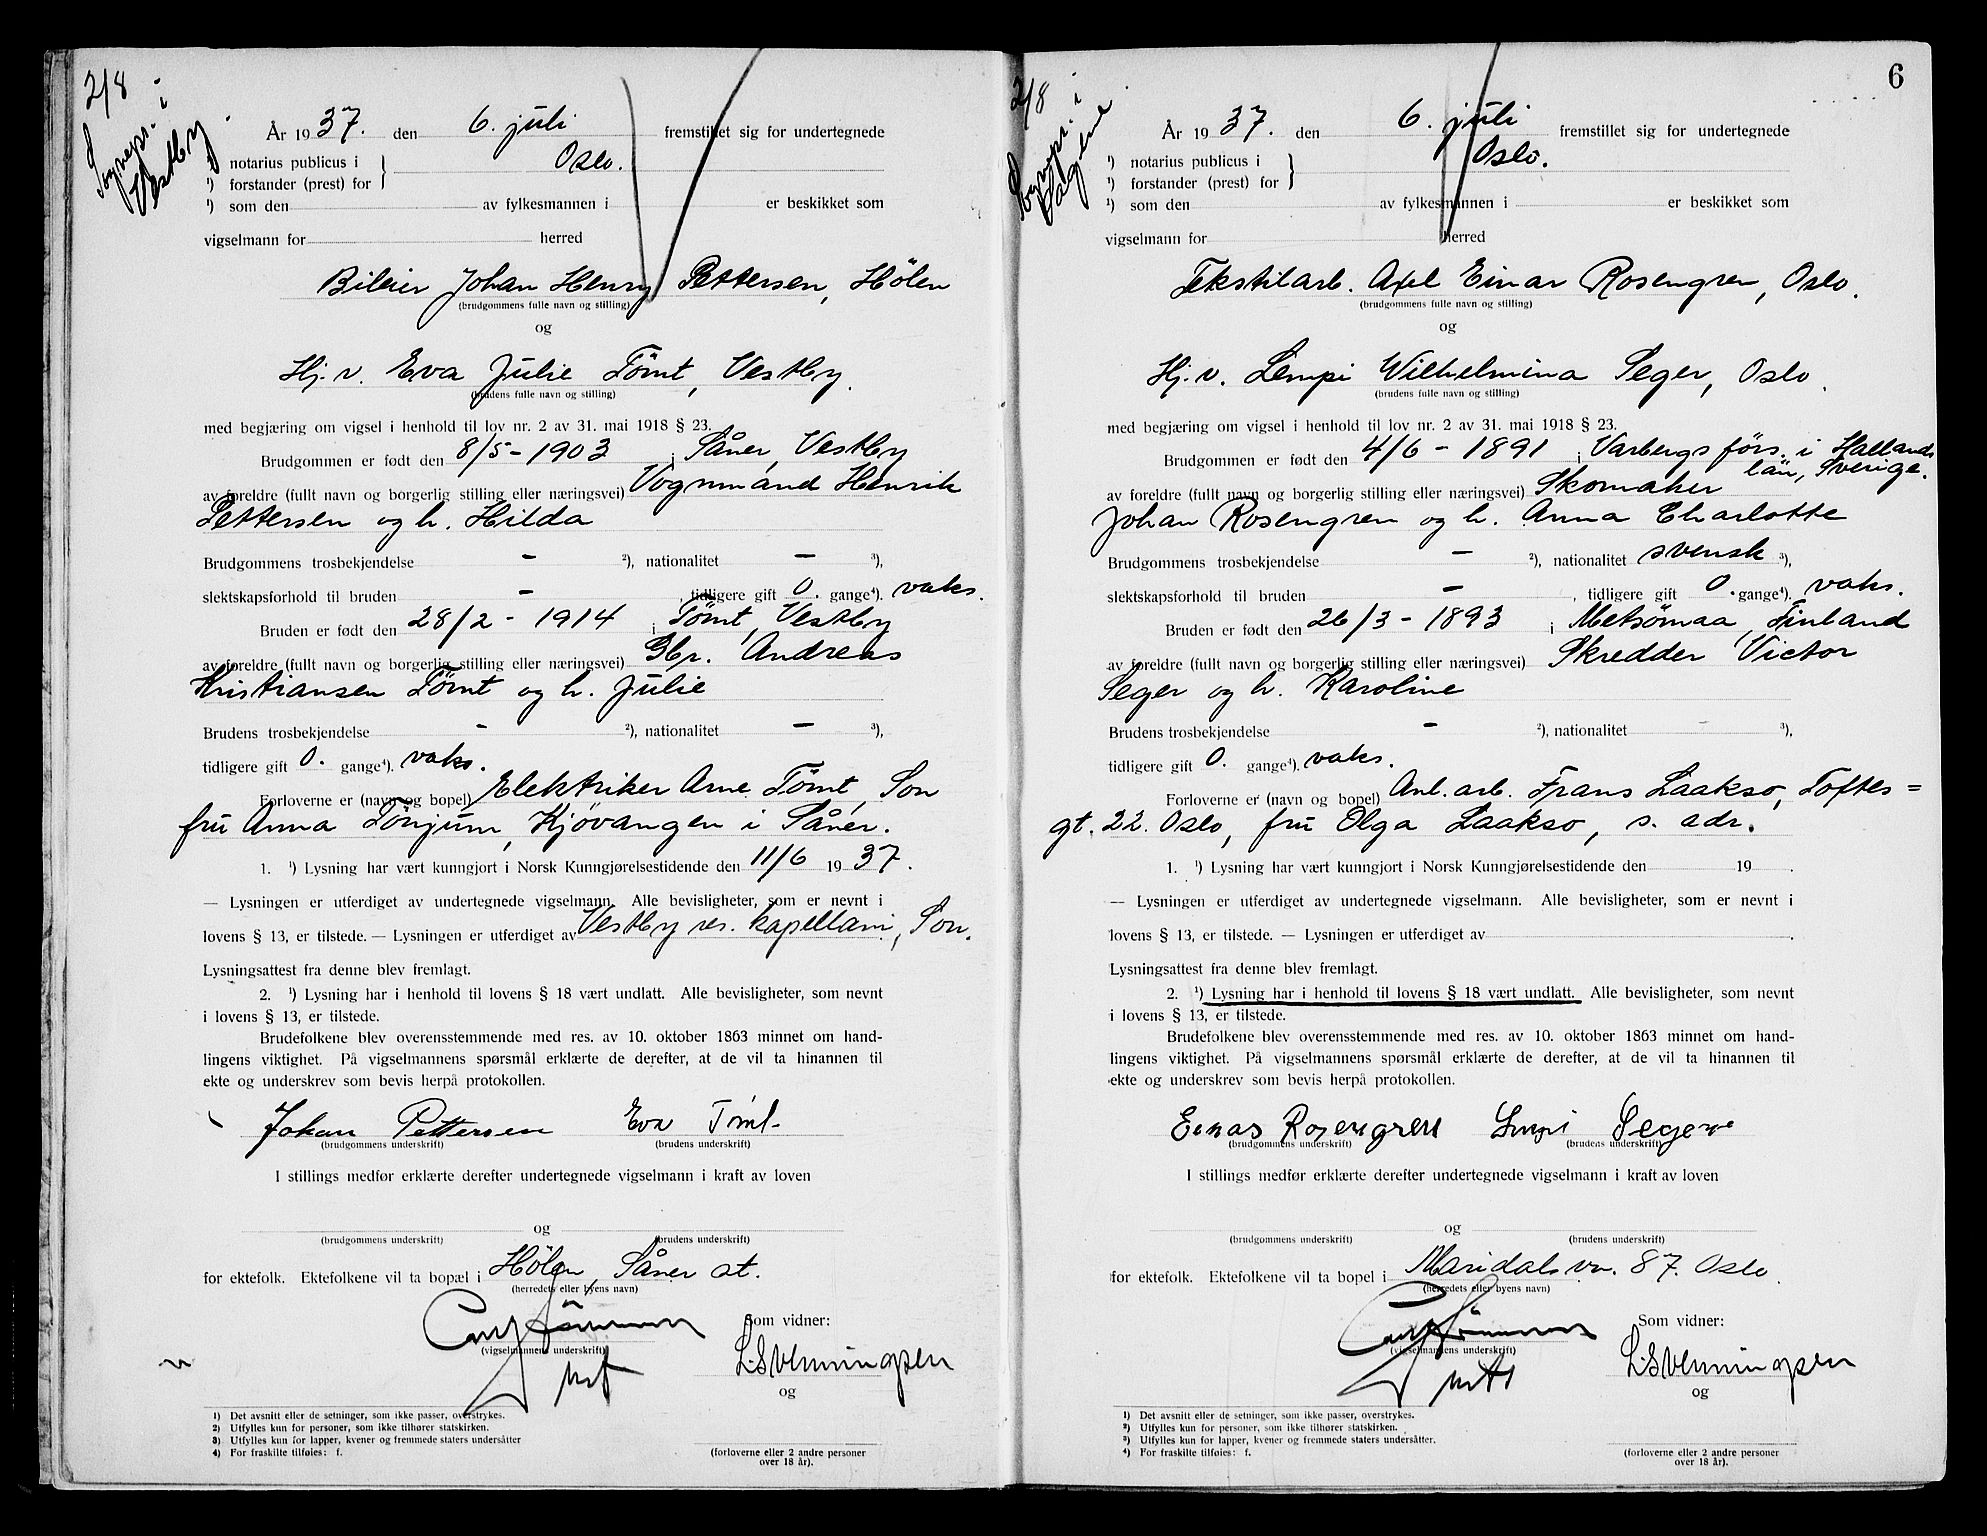 2/8
Sognepr. i
Vestby
År 1937. den 6. juli fremstillet sig for undertegnede
¹) notarius publicus i } Oslo.
¹) forstander (prest) for
¹) som den av fylkesmannen i er beskikket som
vigselmann for herred
Bileier Johan Henry Pettersen, Hölen
(brudgommens fulle navn og stilling)
og
Hj.v. Eva Julie Tömt, Vestby.
(brudens fulle navn og stilling)
med begjæring om vigsel i henhold til lov nr. 2 av 31. mai 1918 § 23.
Brudgommen er født den 8/5 - 1903 i Såner, Vestby
av foreldre (fullt navn og borgerlig stilling eller næringsvei) Vognmand Henrik
Pettersen og h. Hilda
Brudgommens trosbekjendelse - ²), nationalitet - ³),
slektskapsforhold til bruden - , tidligere gift 0. gange⁴). vaks.
Bruden er født den 28/2 - 1914 i Tömt, Vestby
av foreldre (fullt navn og borgerlig stilling eller næringsvei) Gbr. Andreas
Kristiansen Tömt og h. Julie
Brudens trosbekjendelse - ²), nationalitet - ³),
tidligere gift 0. gange⁴). vaks.
Forloverne er (navn og bopel) Elektriker Arne Tömt, Son
fru Anna Tönjum, Kjövangen i Såner.
1. ¹) Lysning har vært kunngjort i Norsk Kunngjørelsestidende den 11/6 1937.
— Lysningen er utferdiget av undertegnede vigselmann. Alle bevisligheter, som er nevnt i
lovens § 13, er tilstede. — Lysningen er utferdiget av Vestby res. kapellani, Son.
Lysningsattest fra denne blev fremlagt.
2. ¹) Lysning har i henhold til lovens § 18 vært undlatt. Alle bevisligheter, som nevnt
i lovens § 13, er tilstede.
Brudefolkene blev overensstemmende med res. av 10. oktober 1863 minnet om hand-
lingens viktighet. På vigselmannens spørsmål erklærte de derefter, at de vil ta hinannen til
ekte og underskrev som bevis herpå protokollen.
Johan Pettersen Eva Tömt
(brudgommens underskrift) (brudens underskrift)
I stillings medfør erklærte derefter undertegnede vigselmann i kraft av loven
og
(brudgommens underskrift) (brudens underskrift)
for ektefolk. Ektefolkene vil ta bopæl i Hölen, Såner st.
(herredets eller byens navn)
Som vidner:
(vigselmannens underskrift)
L. S. Venningsen
og
¹) Det avsnitt eller de setninger, som ikke passer, overstrykes.
²) Utfylles kun for personer, som ikke tilhører statskirken.
³) Utfylles kun for lapper, kvener og fremmede staters undersåtter
⁴) For fraskilte tilføies: f.
(forloverne eller 2 andre personer
over 18 år).
6
2/8
Sognepr. i
Sagene
År 1937. den 6. juli fremstillet sig for undertegnede
¹) notarius publicus i } Oslo.
¹) forstander (prest) for
¹) som den av fylkesmannen i er beskikket som
vigselmann for herred
Tekstilarb. Axel Einar Rosengren, Oslo.
(brudgommens fulle navn og stilling)
og
Hj.v. Lempi Wilhelmina Seger, Oslo.
(brudens fulle navn og stilling)
med begjæring om vigsel i henhold til lov nr. 2 av 31. mai 1918 § 23.
Brudgommen er født den 4/6 - 1891 i Varbergs förs. i Hallands
län, Sverige.
av foreldre (fullt navn og borgerlig stilling eller næringsvei) Skomaker
Johan Rosengren og h. Anna Charlotte
Brudgommens trosbekjendelse - ²), nationalitet svensk ³),
slektskapsforhold til bruden - , tidligere gift 0. gange⁴). vaks.
Bruden er født den 26/3 - 1893 i Metsömaa, Finland
av foreldre (fullt navn og borgerlig stilling eller næringsvei) Skredder Victor
Seger og h. Karoline
Brudens trosbekjendelse - ²), nationalitet - ³),
tidligere gift 0. gange⁴). vaks.
Forloverne er (navn og bopel) Anl. arb. Frans Laakso, Toftes=
gt. 22. Oslo, fru Olga Laakso, s. adr.
1. ¹) Lysning har vært kunngjort i Norsk Kunngjørelsestidende den 19 .
— Lysningen er utferdiget av undertegnede vigselmann. Alle bevisligheter, som er nevnt i
lovens § 13, er tilstede. — Lysningen er utferdiget av .
Lysningsattest fra denne blev fremlagt.
2. ¹) Lysning har i henhold til lovens § 18 vært undlatt. Alle bevisligheter, som nevnt
i lovens § 13, er tilstede.
Brudefolkene blev overensstemmende med res. av 10. oktober 1863 minnet om hand-
lingens viktighet. På vigselmannens spørsmål erklærte de derefter, at de vil ta hinannen til
ekte og underskrev som bevis herpå protokollen.
Einar Rosengren Lempi Seger
(brudgommens underskrift) (brudens underskrift)
I stillings medfør erklærte derefter undertegnede vigselmann i kraft av loven
og
(brudgommens underskrift) (brudens underskrift)
for ektefolk. Ektefolkene vil ta bopel i Maridalsvn. 87. Oslo.
(herredets eller byens navn)
Som vidner:
(vigselmannens underskrift)
L. S. Venningsen
og
¹) Det avsnitt eller de setninger, som ikke passer, overstrykes.
²) Utfylles kun for personer, som ikke tilhører statskirken.
³) Utfylles kun for lapper, kvener og fremmede staters undersåtter.
⁴) For fraskilte tilføies: f.
(forloverne eller 2 andre personer
over 18 år).